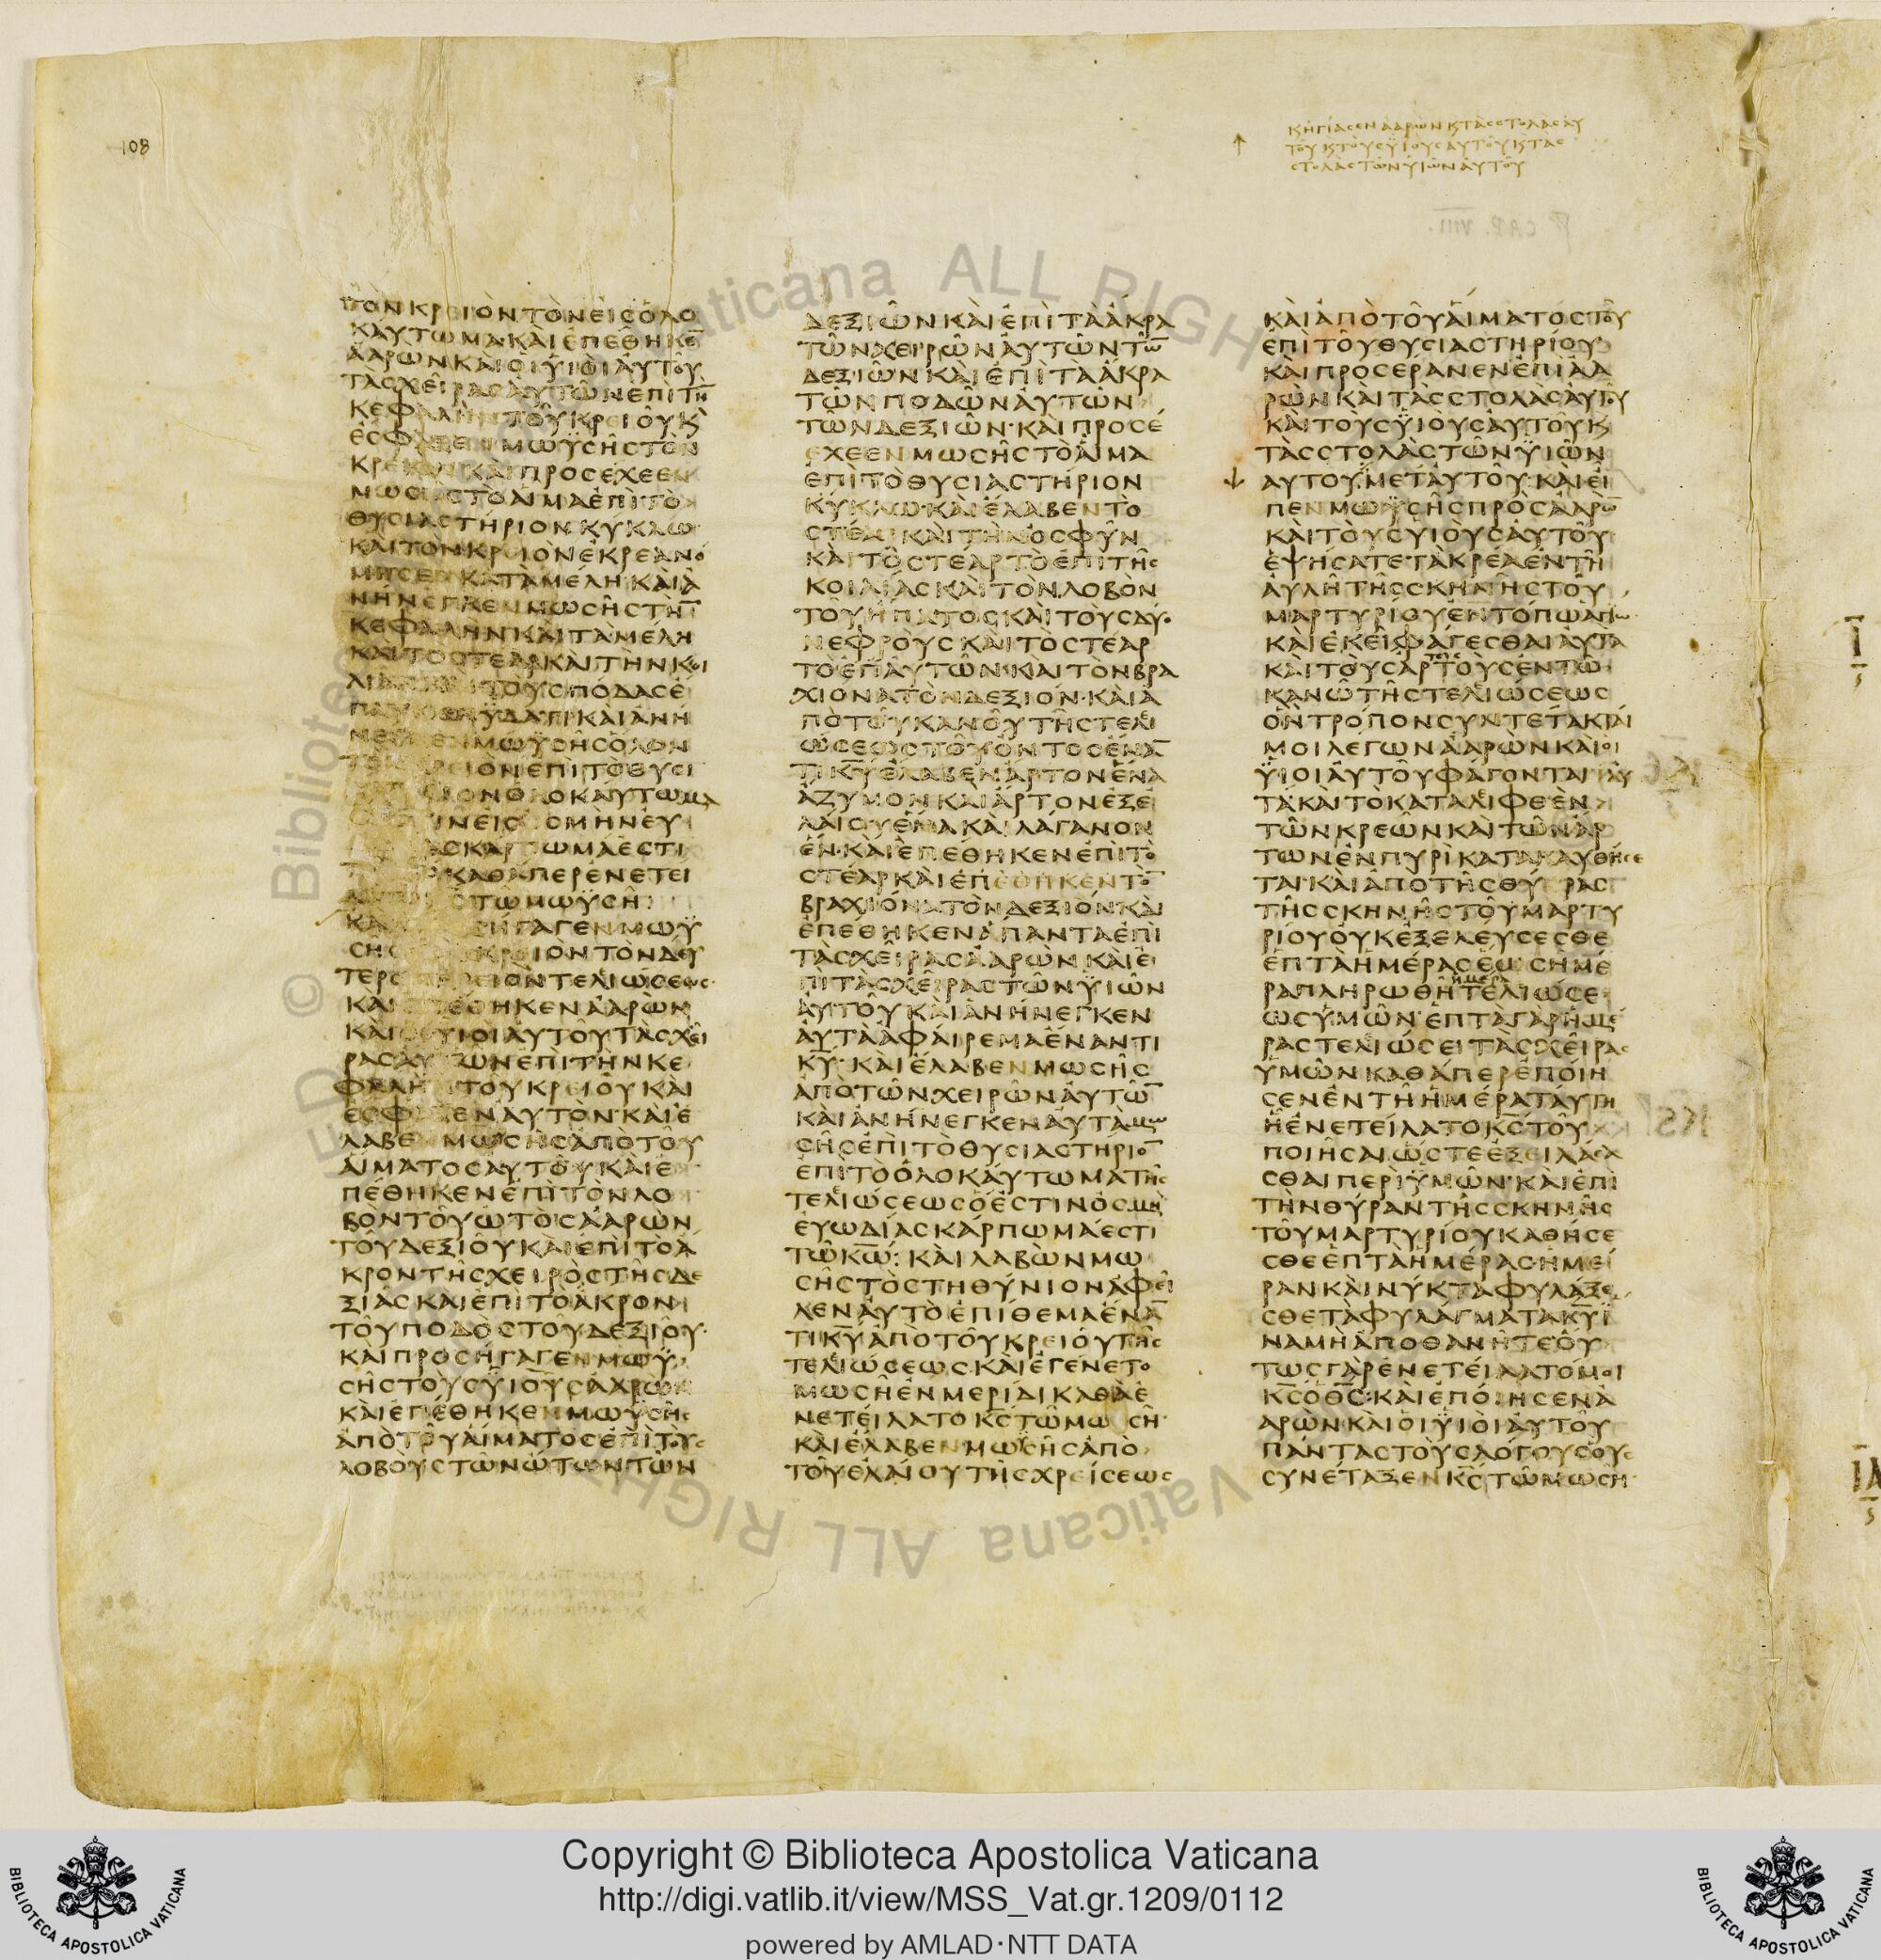 108
κηγίασεν ἀαρὼν κ τὰς στολὰς αυ
τοῦ κ τοὺς ϋϊοὺς αυτοῦ κ τὰς
στολὰς τῶν ϋϊῶν αὐτοῦ
ΤΟΝΚΡΕΙΟΝΤΟΝΕΙΣΟΛΟ
ΚΑΥΤΩΜΑΚΑΙΕΠΕΘΗΚΕ̅
ΑΑΡΩΝΚΑΙΟΙΥΙΟΙΑΥΤΟΥ
ΤΑΣΧΕΙΡΑΣΑΥΤΩΝΕΠΙΤΗ̅
ΚΕΦΑΛΗΝΤΟΥΚΡΕΙΟΥΚ
ΕΣΦΑΞΕΝΜΩΥΣΗΣΤΟΝ
ΚΡΕΙΟΝΚΑΙΠΡΟΣΕΧΕΕΝ
ΜΩΣΗΣΤΟΑΙΜΑΕΠΙΤΟ
ΘΥΣΙΑΣΤΗΡΙΟΝΚΥΚΛΩ
ΚΑΙΤΟΝΚΡΕΙΟΝΕΚΡΕΑΝΟ
ΜΗΣΕΝΚΑΤΑΜΕΛΗΚΑΙΑ
ΝΗΝΕΓΚΕΝΜΩΣΗΣΤΗ̅
ΚΕΦΑΛΗΝΚΑΙΤΑΜΕΛΗ
ΚΑΙΤΟΣΤΕΑΡΚΑΙΤΗΝΚΟΙ
ΛΙΑΝΚΑΙΤΟΥΣΠΟΔΑΣΕ
ΠΛΥΝΕΝΫΔΑΤΙΚΑΙΑΝΗ
ΝΕΓΚΕΝΜΩΫΣΗΣΟΛΟΝ
ΤΟΝΚΡΕΙΟΝΕΠΙΤΟΘΥΣΙ
ΟΝΟΛΟΚΑΥΤΩΜΑ
ΙΝΕΙΣΟΣΜΗΝΕΥ
ΑΣΚΑΡΠΩΜΑΕΣΤΙ
ΚΑΘΑΠΕΡΕΝΕΤΕΙ
ΤΩΜΩΫΣΗ
ΚΑΙΠΡΟΣΗΓΑΓΕΝΜΩΫ
ΣΗΣΤΟΝΚΡΕΙΟΝΤΟΝΔΕΥ
ΤΕΡΟΝΚΡΕΙΟΝΤΕΛΙΩΣΕΩΣ
ΚΑΙΕΠΕΘΗΚΕΝΑΑΡΩΝ
ΚΑΙΟΙΥΙΟΙΑΥΤΟΥΤΑΣΧΕΙ
ΡΑΣΑΥΤΩΝΕΠΙΤΗΝΚΕ
ΦΑΛΗΝΤΟΥΚΡΕΙΟΥΚΑΙ
ΕΣΦΑΞΕΝΑΥΤΟΝΚΑΙΕ
ΛΑΒΕΝΜΩΣΗΣΑΠΟΤΟΥ
ΑΙΜΑΤΟΣΑΥΤΟΥΚΑΙΕ
ΠΕΘΗΚΕΝΕΠΙΤΟΝΛΟ
ΒΟΝΤΟΥΩΤΟΣΑΑΡΩΝ
ΤΟΥΔΕΞΙΟΥΚΑΙΕΠΙΤΟΑ
ΚΡΟΝΤΗΣΧΕΙΡΟΣΤΗΣΔΕ
ΞΙΑΣΚΑΙΕΠΙΤΟΑΚΡΟΝ
ΤΟΥΠΟΔΟΣΤΟΥΔΕΞΙΟΥ
ΚΑΙΠΡΟΣΗΓΑΓΕΝΜΩΫ
ΣΗΣΤΟΥΣΫΙΟΥΣΑΑΡΩΝ
ΚΑΙΕΠΕΘΗΚΕΝΜΩΫΣΗΣ
ΑΠΟΤΟΥΑΙΜΑΤΟΣΕΠΙΤΟΥΣ
ΛΟΒΟΥΣΤΩΝΩΤΩΝΤΩΝ
ΔΕΞΙΩΝΚΑΙΕΠΙΤΑΑΚΡΑ
ΤΩΝΧΕΙΡΩΝΑΥΤΩΝΤΩ̅
ΔΕΞΙΩΝΚΑΙΕΠΙΤΑΑΚΡΑ
ΤΩΝΠΟΔΩΝΑΥΤΩΝ
ΤΩΝΔΕΞΙΩΝΚΑΙΠΡΟΣΕ
ΧΕΕΝΜΩΣΗΣΤΟΑΙΜΑ
ΕΠΙΤΟΘΥΣΙΑΣΤΗΡΙΟΝ
ΚΥΚΛΩΚΑΙΕΛΑΒΕΝΤΟ
ΣΤΕΑΡΚΑΙΤΗΝΟΣΦΥΝ
ΚΑΙΤΟΣΤΕΑΡΤΟΕΠΙΤΗΣ
ΚΟΙΛΙΑΣΚΑΙΤΟΝΛΟΒΟΝ
ΤΟΥΗΠΑΤΟΣΚΑΙΤΟΥΣΔΥΟ
ΝΕΦΡΟΥΣΚΑΙΤΟΣΤΕΑΡ
ΤΟΕΠΑΥΤΩΝΚΑΙΤΟΝΒΡΑ
ΧΙΟΝΑΤΟΝΔΕΞΙΟΝΚΑΙΑ
ΠΟΤΟΥΚΑΝΟΥΤΗΣΤΕΛΕΙ
ΩΣΕΩΣΤΟΥΟΝΤΟΣΕΝΑ̅
ΤΙΚ̅Υ̅ΕΛΑΒΕΝΑΡΤΟΝΕΝΑ
ΑΖΥΜΟΝΚΑΙΑΡΤΟΝΕΞΕ
ΛΑΙΟΥΕΝΑΚΑΙΛΑΓΑΝΟΝ
ΕΝΚΑΙΕΠΕΘΗΚΕΝΕΠΙΤΟ
ΣΤΕΑΡΚΑΙΕΠΕΘΗΚΕΝΤΟ̅
ΒΡΑΧΙΟΝΑΤΟΝΔΕΞΙΟΝΚΑΙ
ΕΠΕΘΗΚΕΝΑΠΑΝΤΑΕΠΙ
ΤΑΣΧΕΙΡΑΣΑΑΡΩΝΚΑΙΕ
ΠΙΤΑΣΧΕΙΡΑΣΤΩΝΫΙΩΝ
ΑΥΤΟΥΚΑΙΑΝΗΝΕΓΚΕΝ
ΑΥΤΑΑΦΑΙΡΕΜΑΕΝΑΝΤΙ
Κ̅Υ̅ΚΑΙΕΛΑΒΕΝΜΩΣΗΣ
ΑΠΟΤΩΝΧΕΙΡΩΝΑΥΤΩ̅
ΚΑΙΑΝΗΝΕΓΚΕΝΑΥΤΑΜΩ
ΣΗΣΕΠΙΤΟΘΥΣΙΑΣΤΗΡΙΟ̅
ΕΠΙΤΟΟΛΟΚΑΥΤΩΜΑΤΗΣ
ΤΕΛΕΙΩΣΕΩΣΟΕΣΤΙΝΟΣΜΗ
ΕΥΩΔΙΑΣΚΑΡΠΩΜΑΕΣΤΙ
ΤΩΚ̅Ω̅ΚΑΙΛΑΒΩΝΜΩ
ΣΗΣΤΟΣΤΗΘΥΝΙΟΝΑΦΕΙ
ΛΕΝΑΥΤΟΕΠΙΘΕΜΑΕΝΑ̅
ΤΙΚ̅Υ̅ΑΠΟΤΟΥΚΡΕΙΟΥΤΗΣ
ΤΕΛΕΙΩΣΕΩΣΚΑΙΕΓΕΝΕΤΟ
ΜΩΣΗΕΝΜΕΡΙΔΙΚΑΘΑΕ
ΝΕΤΕΙΛΑΤΟΚ̅Σ̅ΤΩΜΩΣΗ
ΚΑΙΕΛΑΒΕΝΜΩΥΣΗΣΑΠΟ
ΤΟΥΕΛΑΙΟΥΤΗΣΧΡΕΙΣΕΩΣ
ΚΑΙΑΠΟΤΟΥΑΙΜΑΤΟΣΤΟΥ
ΕΠΙΤΟΥΘΥΣΙΑΣΤΗΡΙΟΥ
ΚΑΙΠΡΟΣΕΡΑΝΕΝΕΠΙΑΑ
ΡΩΝΚΑΙΤΑΣΣΤΟΛΑΣΑΥΤΟΥ
ΚΑΙΤΟΥΣΫΙΟΥΣΑΥΤΟΥΚ
ΤΑΣΣΤΟΛΑΣΤΩΝΫΙΩΝ
ΑΥΤΟΥΜΕΤΑΥΤΟΥΚΑΙΕΙ
ΠΕΝΜΩΥΣΗΣΠΡΟΣΑΑΡΩ̅
ΚΑΙΤΟΥΣΥΙΟΥΣΑΥΤΟΥ
ΕΨΗΣΑΤΕΤΑΚΡΕΑΕΝΤΗ
ΑΥΛΗΤΗΣΣΚΗΝΗΣΤΟΥ
ΜΑΡΤΥΡΙΟΥΕΝΤΟΠΩΑΓΙΩ
ΚΑΙΕΚΕΙΦΑΓΕΣΘΑΙΑΥΤΑ
ΚΑΙΤΟΥΣΑΡΤΟΥΣΕΝΤΩ
ΚΑΝΩΤΗΣΤΕΛΕΙΩΣΕΩΣ
ΟΝΤΡΟΠΟΝΣΥΝΤΕΤΑΚΤΑΙ
ΜΟΙΛΕΓΩΝΑΑΡΩΝΚΑΙΟΙ
ΫΙΟΙΑΥΤΟΥΦΑΓΟΝΤΑΙΑΥ
ΤΑΚΑΙΤΟΚΑΤΑΛΕΙΦΘΕΝ
ΤΩΝΚΡΕΩΝΚΑΙΤΩΝΑΡ
ΤΩΝΕΝΠΥΡΙΚΑΤΑΚΑΥΘΗΣΕ
ΤΑΙΚΑΙΑΠΟΤΗΣΘΥΡΑΣ
ΤΗΣΣΚΗΝΗΣΤΟΥΜΑΡΤΥ
ΡΙΟΥΟΥΚΕΞΕΛΕΥΣΕΣΘΕ
ΕΠΤΑΗΜΕΡΑΣΕΩΣΗΜΕ
ΡΑΠΛΗΡΩΘΗΤΕΛΙΩΣΕ
ΩΣΥΜΩΝΕΠΤΑΓΑΡΗΜΕ
ΡΑΣΤΕΛΕΙΩΣΕΙΤΑΣΧΕΙΡΑΣ
ΥΜΩΝΚΑΘΑΠΕΡΕΠΟΙΗ
ΣΕΝΕΝΤΗΗΜΕΡΑΤΑΥΤΗ
ΗΕΝΕΤΕΙΛΑΤΟΚ̅Σ̅ΤΟΥ
ΠΟΙΗΣΑΙΩΣΤΕΕΞΕΙΛΑΣΑ
ΣΘΑΙΠΕΡΙΫΜΩΝΚΑΙΕΠΙ
ΤΗΝΘΥΡΑΝΤΗΣΣΚΗΝΗΣ
ΤΟΥΜΑΡΤΥΡΙΟΥΚΑΘΗΣΕ
ΣΘΕΕΠΤΑΗΜΕΡΑΣΗΜΕ
ΡΑΝΚΑΙΝΥΚΤΑΦΥΛΑΞΕ
ΣΘΕΤΑΦΥΛΑΓΜΑΤΑΚ̅Υ̅Ϊ
ΝΑΜΗΑΠΟΘΑΝΗΤΕΟΥ
ΤΩΣΓΑΡΕΝΕΤΕΙΛΑΤΟΜΟΙ
Κ̅Σ̅ΟΘ̅Σ̅ΚΑΙΕΠΟΙΗΣΕΝΑ
ΑΡΩΝΚΑΙΟΙΫΙΟΙΑΥΤΟΥ
ΠΑΝΤΑΣΤΟΥΣΛΟΓΟΥΣΟΥΣ
ΣΥΝΕΤΑΞΕΝΚ̅Σ̅ΤΩΜΩΣΗ
Copyright © Biblioteca Apostolica Vaticana
http://digi.vatlib.it/view/MSS_Vat.gr.1209/0112
powered by AMLAD·NTT DATA
BIBLIOTECA APOSTOLICA VATICANA
BIBLIOTECA APOSTOLICA VATICANA